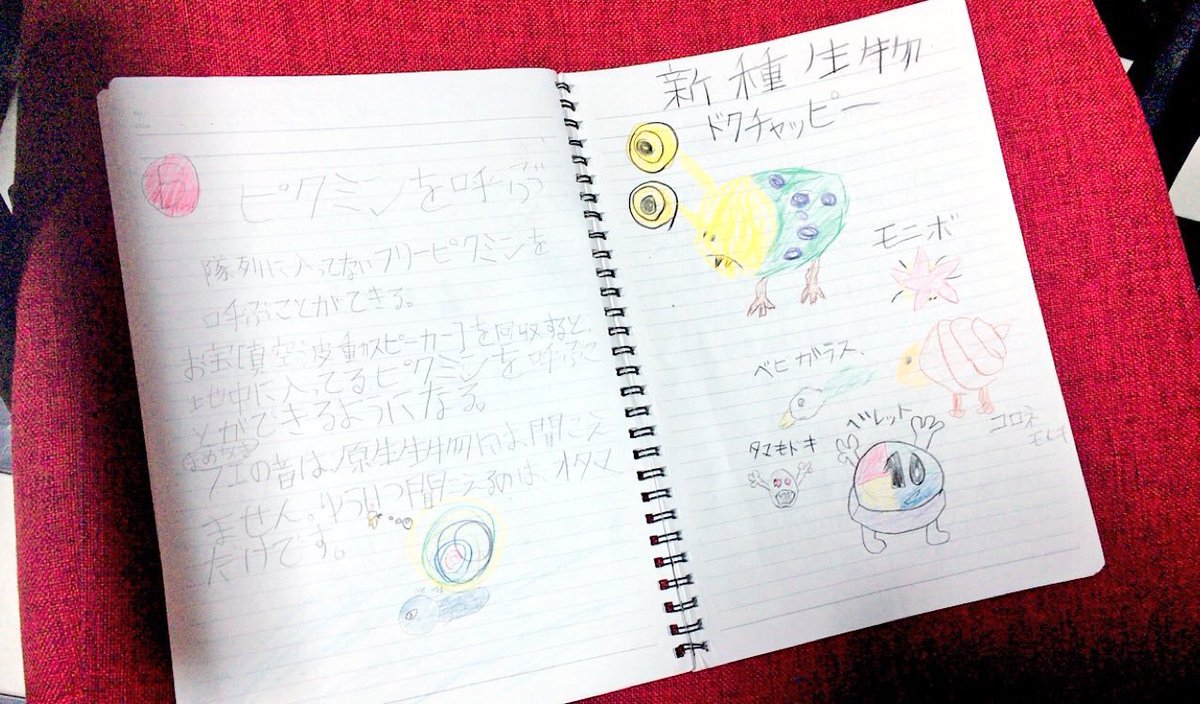 ピクミンを呼ぶ
隊列に入ってないフリーピクミンを
呼ぶことができる。
お宝[真空波動スピーカー]を回収すると、
地中に入ってるピクミンを呼ぶこ
とができるようになる。
フエの音は、原生生物には、聞こえ
ません。ゆういつ聞こえるのは、オタマ
だけです。
新種生物
ドクチャッピー
モニボ
ベビガラス
ペレット
タマモドキ
コロネ
10